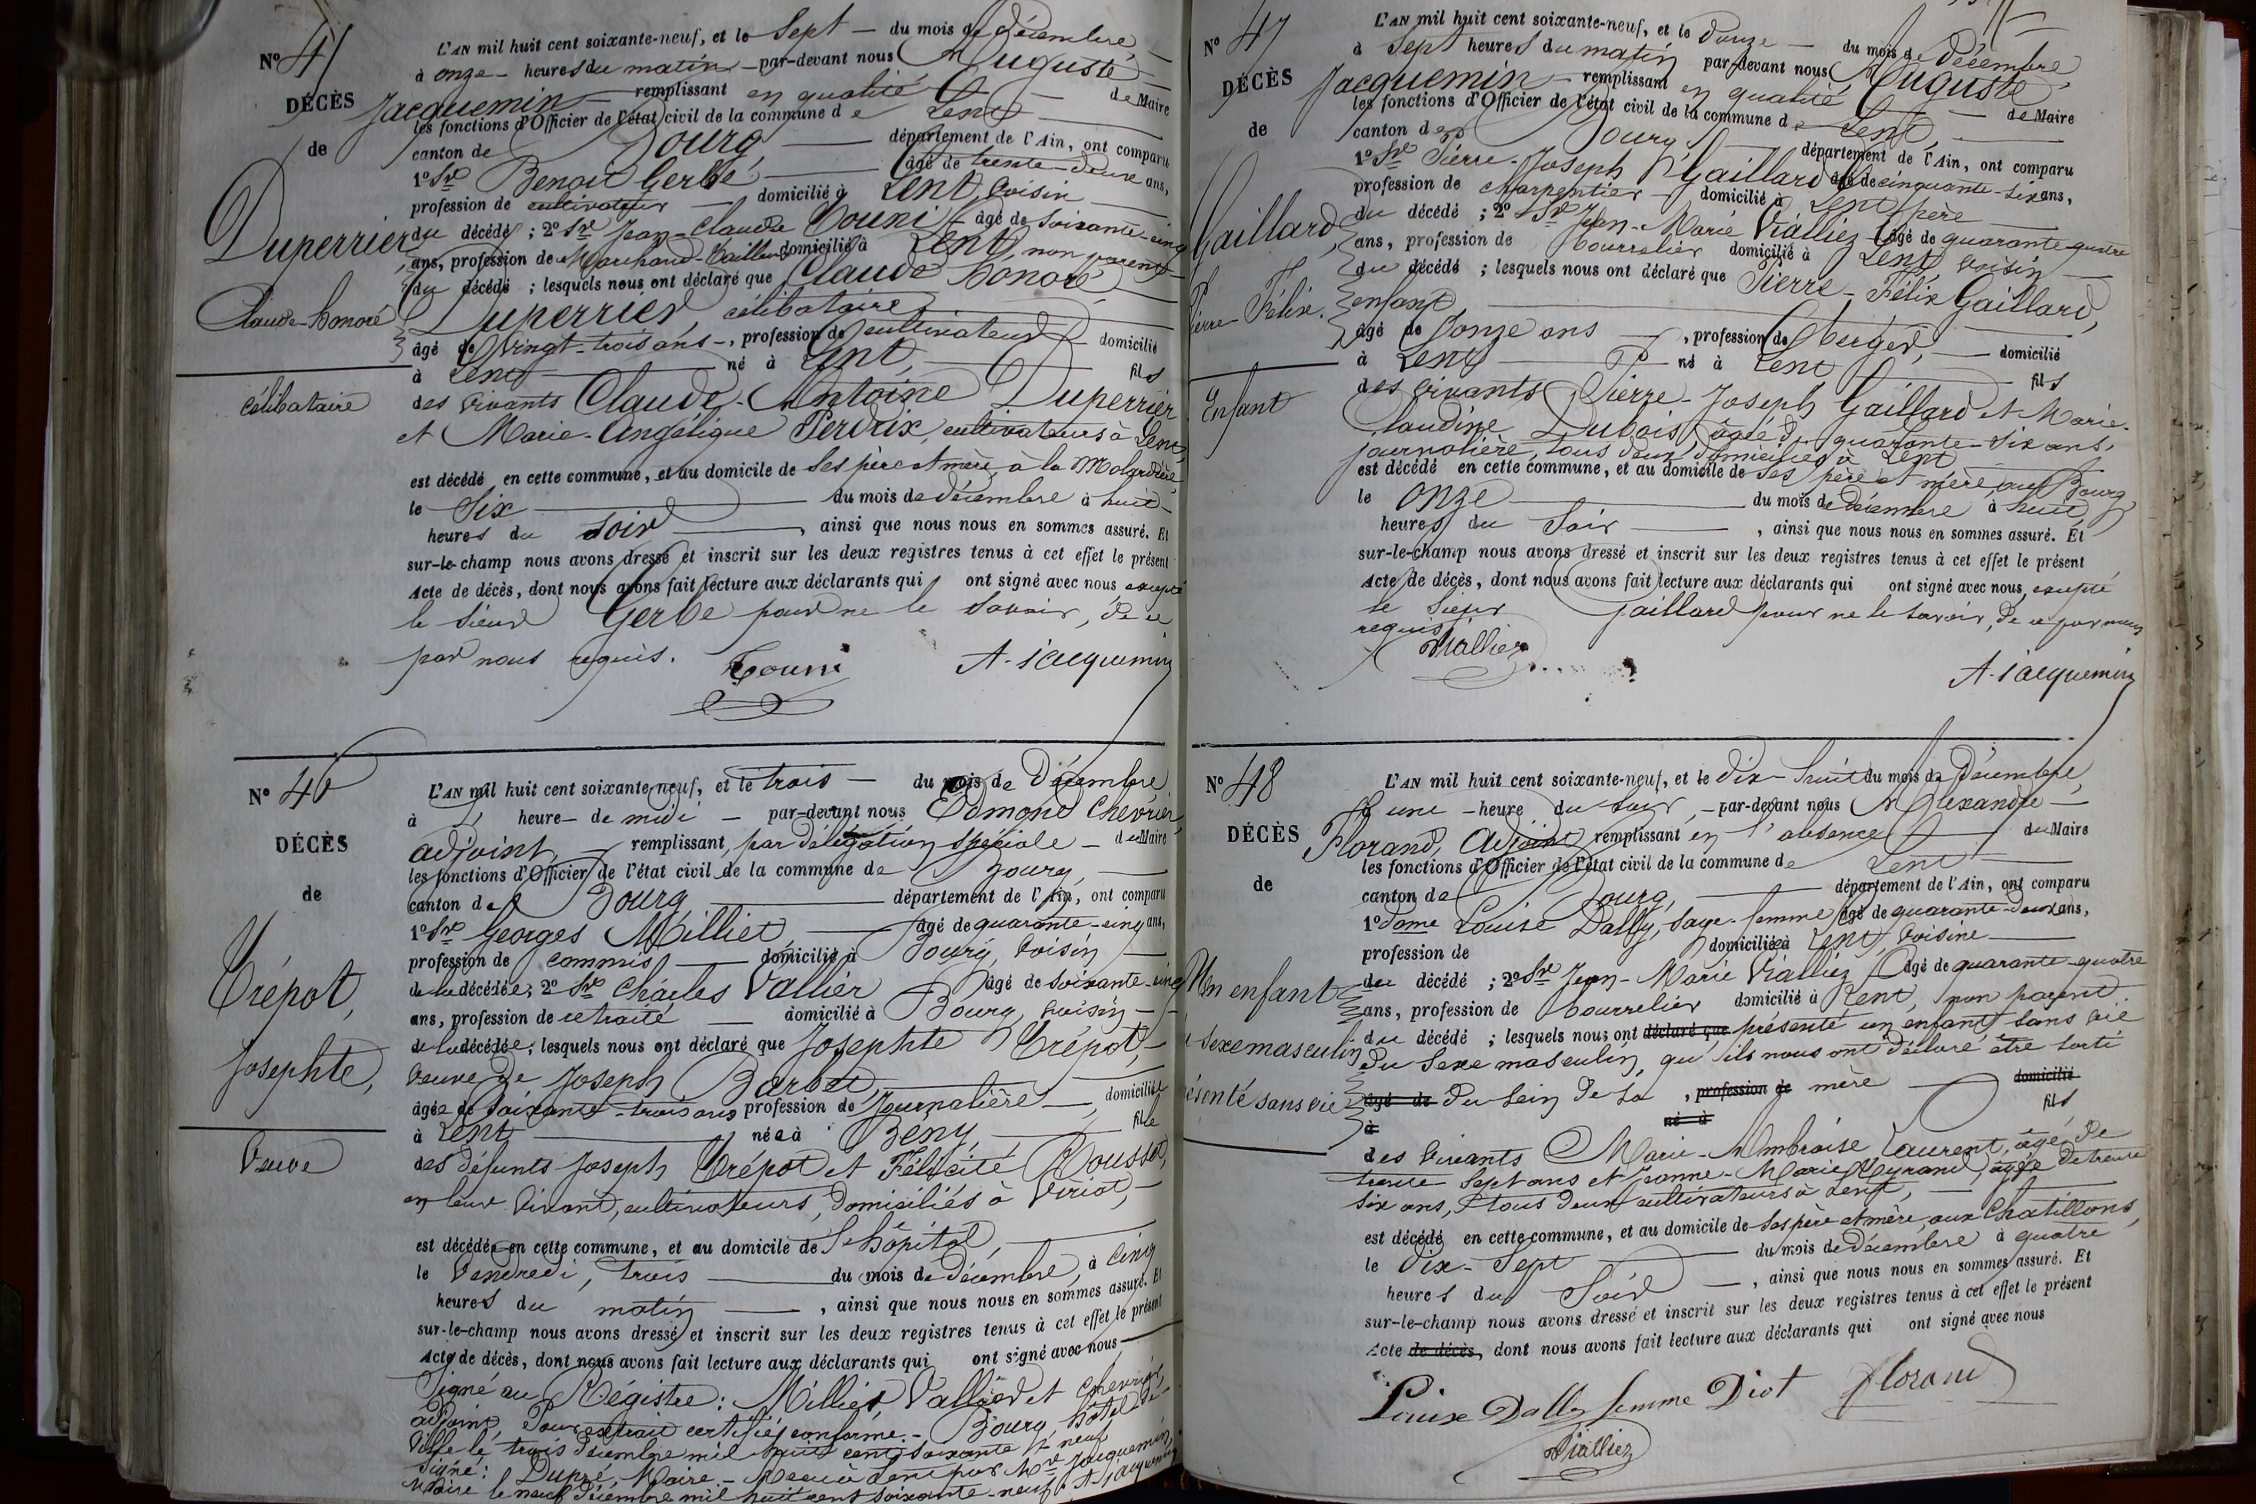 N° 45
DÉCÈS
de
Duperrier
Claude-honoré
célibataire
L'AN mil huit cent soixante-neuf, et le Sept — du mois de décembre,
à onze — heures du matin — par-devant nous Auguste
Jacquemin — remplissant en qualité — de Maire
les fonctions d'Officier de l'état civil de la commune de Lent
canton de Bourg — département de l'Ain, ont comparu
1° Sr Benoit Gerbe — âgé de trente-deux ans,
profession de cultivateur — domicilié à Lent, voisin
du décédé ; 2° Sr Jean-Claude Couni — âgé de soixante-cinq
ans, profession de Marchand-Tailleur domicilié à Lent, non parent
du décédé ; lesquels nous ont déclaré que Claude honoré
Duperrier célibataire
âgé de vingt-trois ans —, profession de cultivateur — domicilié
à Lent — né à Lent, — fils
des vivants Claude-Antoine Duperrier
et Marie-Angélique Perdrix, cultivateurs à Lent,
est décédé en cette commune, et au domicile de Ses père et mère, à la Molardière
le Six — du mois de décembre à huit —
heures du soir —, ainsi que nous nous en sommes assuré. Et
sur-le-champ nous avons dressé et inscrit sur les deux registres tenus à cet effet le présent
Acte de décès, dont nous avons fait lecture aux déclarants qui ont signé avec nous excepté
le sieur Gerbe pour ne le savoir, de ce
par nous requis. Couni A. Jacquemin
N° 46
DÉCÈS
de
Trépot,
Josephte,
Veuve
L'AN mil huit cent soixante-neuf, et le trois — du mois de Décembre
à heure — de midi — par-devant nous Edmond Chevrier,
adjoint, — remplissant, par délégation spéciale — du Maire
les fonctions d'Officier de l'état civil de la commune de Bourg,
canton de Bourg — département de l'Ain, ont comparu
1° Sr Georges Milliet — âgé de quarante-cinq ans,
profession de commis — domicilié à Bourg, voisin
de la décédée ; 2° Sr Charles Vallier âgé de soixante-cinq
ans, profession de retraité — domicilié à Bourg, voisin —
de la décédée ; lesquels nous ont déclaré que Josephte Trépot,
veuve de Joseph Barbet,
âgée de soixante-trois ans profession de Journalière —, domiciliée
à Lent — née à Beny, — fille
des défunts Joseph Trépot et Félicité Rousset,
en leur vivant, cultivateurs, domiciliés à Viriat, —
est décédée en cette commune, et au domicile de L'hôpital,
le Vendredi, trois — du mois de Décembre, à Cinq
heures du matin —, ainsi que nous nous en sommes assuré. Et
sur-le-champ nous avons dressé et inscrit sur les deux registres tenus à cet effet le présent
Acte de décès, dont nous avons fait lecture aux déclarants qui ont signé avec nous —
Signé au Régistre : Milliet, Vallier et Chevrier,
adjoint, Pour extrait certifié conforme. — Bourg, hôtel de
Ville le trois Décembre mil huit cent soixante neuf
Signé : Dupré, Maire. — Mr Jacquemin,
Maire le neuf Décembre mil huit cent soixante-neuf. A. Jacquemin
N° 47
DÉCÈS
de
Gaillard,
Pierre-Félix.
Enfant
L'AN mil huit cent soixante-neuf, et le Douze — du mois de Décembre,
à Sept heures du matin par-devant nous Auguste
Jacquemin — remplissant en qualité — de Maire
les fonctions d'Officier de l'état civil de la commune de Lent,
canton de Bourg — département de l'Ain, ont comparu
1° Sr Pierre-Joseph Gaillard âgé de cinquante-six ans,
profession de charpentier — domicilié à Lent, père
du décédé ; 2° Sr Jean-Marie Vialliez âgé de quarante-quatre
ans, profession de bourrelier domicilié à Lent, voisin
du décédé ; lesquels nous ont déclaré que Pierre-Félix Gaillard,
enfant
âgé de onze ans —, profession de berger, — domicilié
à Lent — né à Lent — fils
des vivants Pierre-Joseph Gaillard et Marie-
Claudine Dubois, âgée de quarante-six ans,
journalière, tous deux domiciliés à Lent
est décédé en cette commune, et au domicile de Ses père et mère, au Bourg
le onze — du mois de Décembre à huit
heures du Soir —, ainsi que nous nous en sommes assuré. Et
sur-le-champ nous avons dressé et inscrit sur les deux registres tenus à cet effet le présent
Acte de décès, dont nous avons fait lecture aux déclarants qui ont signé avec nous, excepté
le sieur Gaillard pour ne le savoir, de ce par nous
requis.
Vialliez
A. Jacquemin
N° 48
DÉCÈS
de
Un enfant
sexe masculin
présenté sans vie
L'AN mil huit cent soixante-neuf, et le Dix-huit du mois de Décembre,
à une — heure du soir, — par-devant nous Alexandre —
Florand, Adjoint, remplissant en l'absence — du Maire
les fonctions d'Officier de l'état civil de la commune de Lent —
canton de Bourg, — département de l'Ain, ont comparu
1° Dame Louise Dally, Sage-femme âgé de quarante-deux ans,
profession de domiciliée à Lent, voisine —
du décédé ; 2° Sr Jean-Marie Vialliez, âgé de quarante-quatre
ans, profession de bourrelier domicilié à Lent, non parent
du décédé ; lesquels nous ont déclaré que présenté un enfant sans vie
du sexe masculin, qu'ils nous ont déclaré être sorti
âgé de du sein de sa , profession de mère — domicilié
à né à fils
des vivants Marie-Ambroise Laurent, âgé de
trente Sept ans et Jeanne-Marie Neyrand, âgée de trente
six ans, tous deux cultivateurs à Lent, —
est décédé en cette commune, et au domicile de Ses père et mère, aux Chatillons,
le Dix-Sept — du mois de Décembre à quatre
heures du Soir —, ainsi que nous nous en sommes assuré. Et
sur-le-champ nous avons dressé et inscrit sur les deux registres tenus à cet effet le présent
Acte de décès, dont nous avons fait lecture aux déclarants qui ont signé avec nous
Louise Dally femme Diot Florand
Vialliez